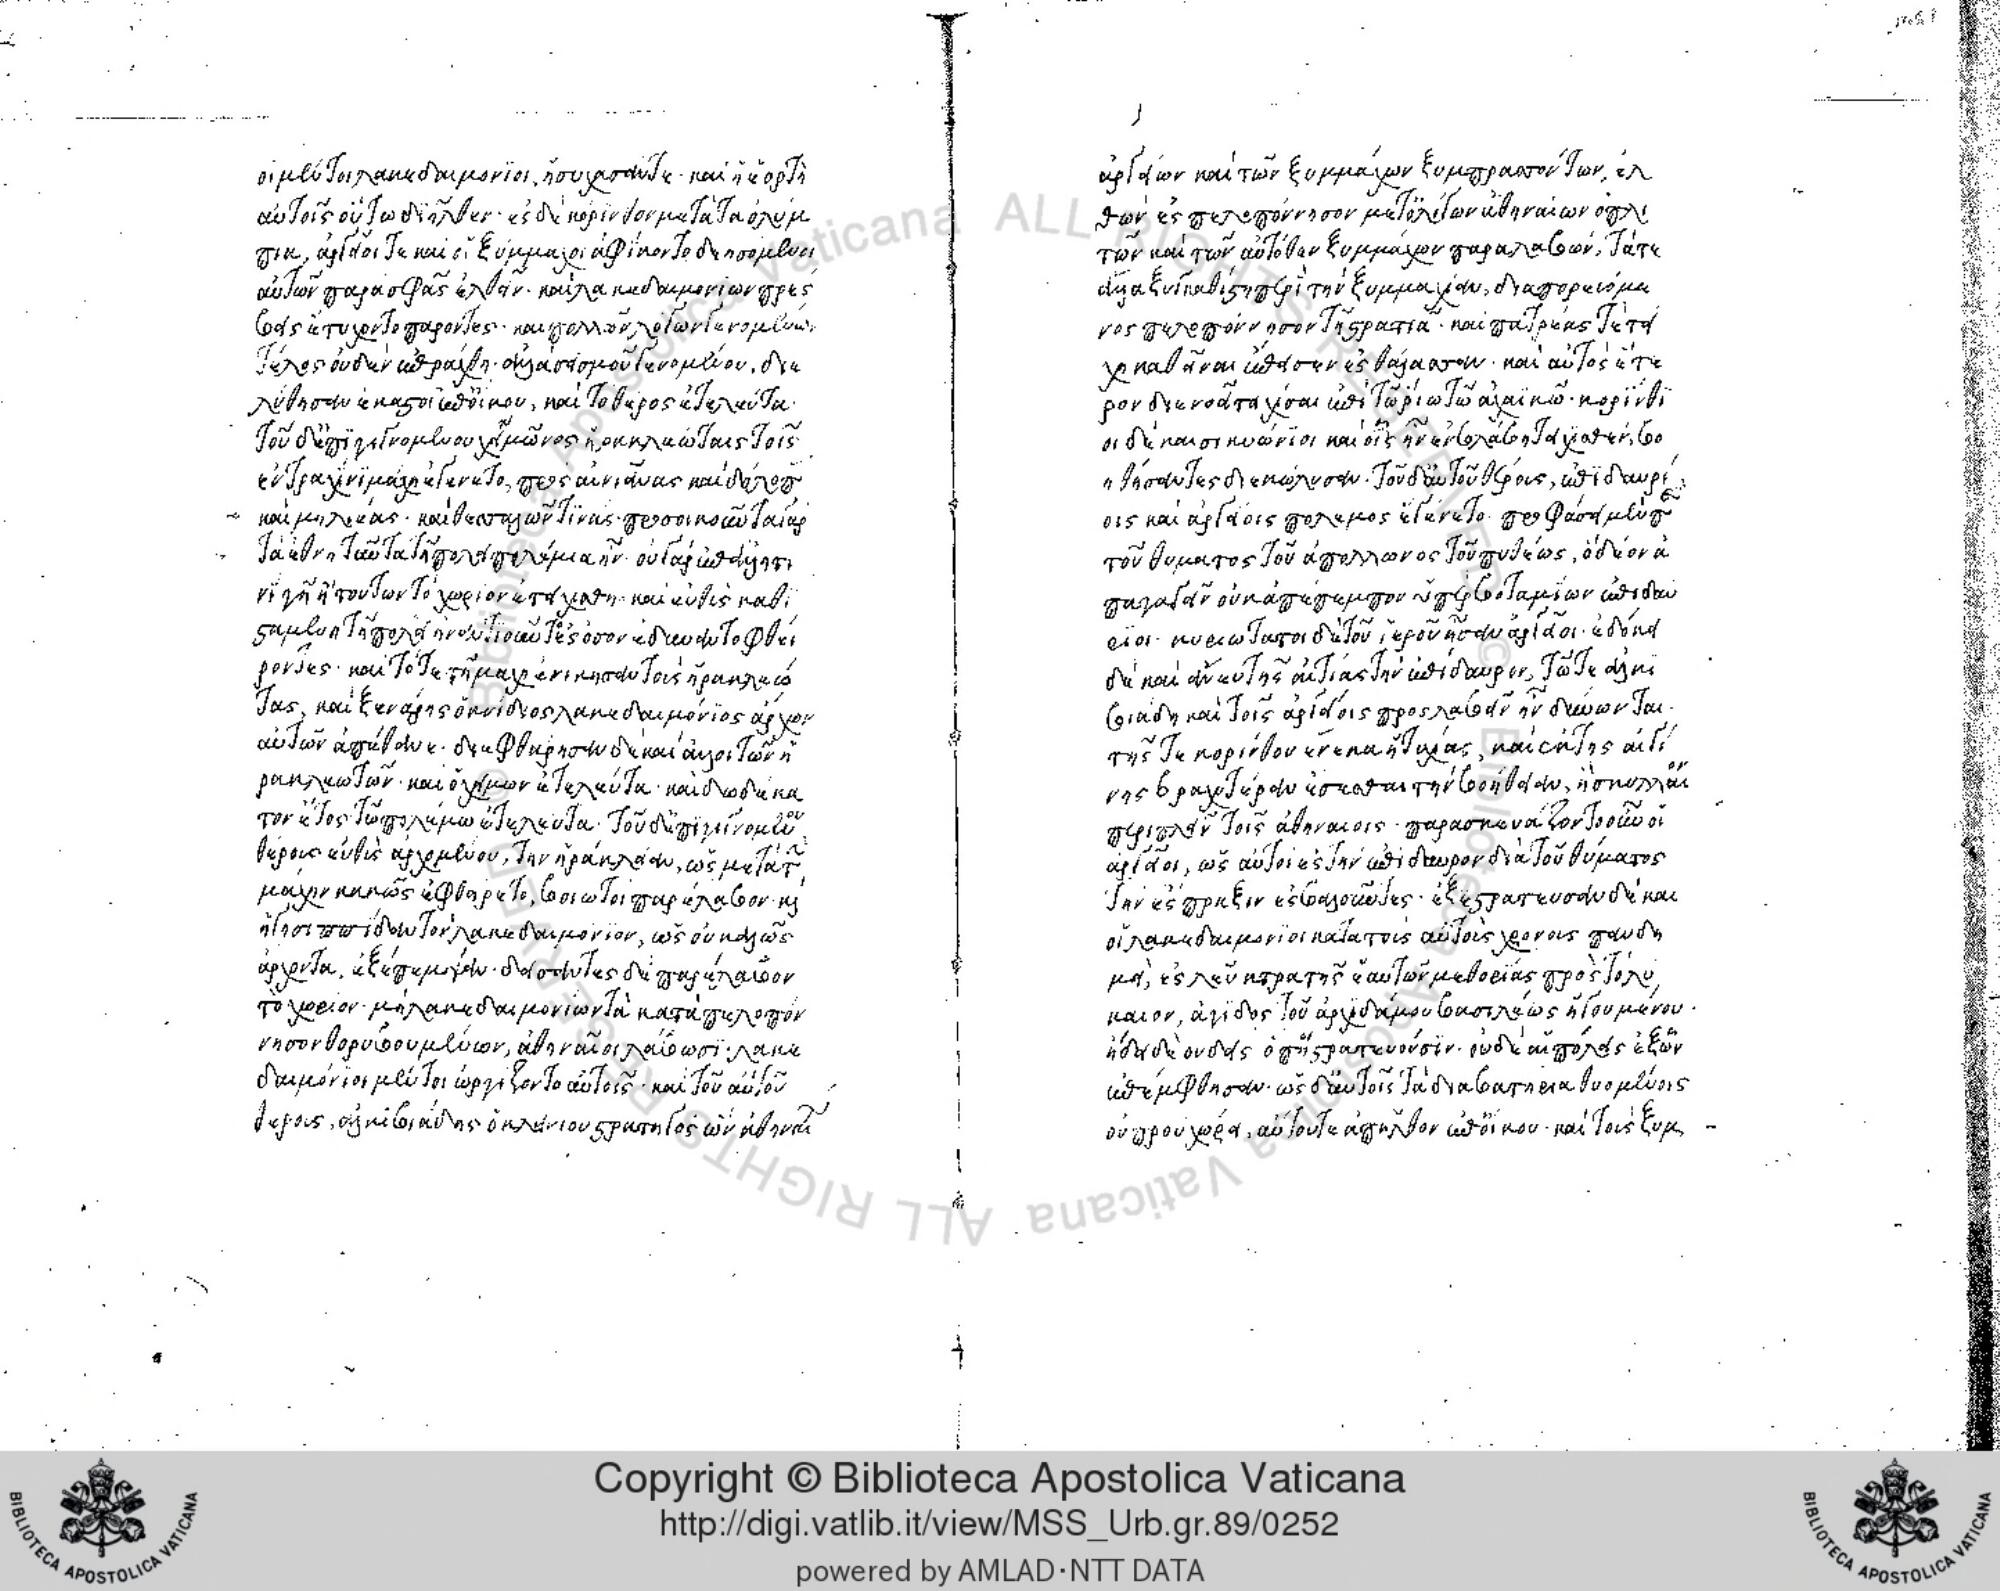 οἱ μέντοι λακεδαιμόνιοι, ἡσύχασάν τε· καὶ ἡ ἑορτὴ
αὐτοῖς οὕτω διῆλθεν· ἐς δὲ κόρινθον μετὰ τὰ ὀλύμ
πια, ἀργεῖοί τε καὶ οἱ ξύμμαχοι ἀφίκοντο δεησόμενοι
αὐτῶν παρὰ σφᾶς ἐλθεῖν· καὶ λακεδαιμονίων πρέσ
βεις ἔτυχον παρόντες· καὶ πολλῶν λόγων γενομένων
τέλος οὐδὲν ἐπράχθη· ἀλλὰ σεισμοῦ γενομένου, διε
λύθησαν ἕκαστοι ἐπ' οἴκου, καὶ τὸ θέρος ἐτελεύτα·
τοῦ δ' ἐπιγιγνομένου χειμῶνος ἡρακλεώταις τοῖς
ἐν τραχῖνι μάχη ἐγένετο, πρὸς αἰνιᾶνας καὶ δόλοπας
καὶ μηλιέας· καὶ θεσσαλῶν τινάς· προσοικοῦντα γὰρ
τὰ ἔθνη ταῦτα τῇ πόλει πολέμια ἦν· οὐ γὰρ ἐπ' ἄλλῃ τι
νὶ γῇ ἢ τούτων τὸ χωρίον ἐτειχίσθη· καὶ εὐθὺς καθι
σταμένῃ τῇ πόλει ἠναντιοῦντο ἐς ὅσον ἐδύναντο φθεί
ροντες· καὶ τότε τῇ μάχῃ ἐνίκησαν τοὺς ἡρακλεώ
τας, καὶ ξενάρης ὁ κνίδιος λακεδαιμόνιος ἄρχων
αὐτῶν ἀπέθανε· διεφθάρησαν δὲ καὶ ἄλλοι τῶν ἡ
ρακλεωτῶν· καὶ ὁ χειμὼν ἐτελεύτα· καὶ δωδέκα
τον ἔτος τῷ πολέμῳ ἐτελεύτα· τοῦ δ' ἐπιγιγνομένου
θέρους εὐθὺς ἀρχομένου, τὴν ἡράκλειαν, ὡς μετὰ τὴν
μάχην κακῶς ἐφθείρετο, βοιωτοὶ παρέλαβον· καὶ
ἡγησιππίδαν τὸν λακεδαιμόνιον, ὡς οὐ καλῶς
ἄρχοντα, ἐξέπεμψαν· δείσαντες δὲ παρέλαβον
τὸ χωρίον· μὴ λακεδαιμονίων τὰ κατὰ πελοπόν
νησον θορυβουμένων, ἀθηναῖοι λάβωσι· λακε
δαιμόνιοι μέντοι ὠργίζοντο αὐτοῖς· καὶ τοῦ αὐτοῦ
θέρους, ἀλκιβιάδης ὁ κλεινίου στρατηγὸς ὢν ἀθηναί
ἀργείων καὶ τῶν ξυμμάχων ξυμπρασσόντων, ἐλ
θὼν ἐς πελοπόννησον μετ' ὀλίγων ἀθηναίων ὁπλι
τῶν καὶ τῶν αὐτόθεν ξυμμάχων παραλαβών, τά τε
ἄλλα ξυγκαθίστη περὶ τὴν ξυμμαχίαν, διαπορευόμε
νος πελοπόννησον τῇ στρατιᾷ· καὶ πατρέας τε τεί
χη καθεῖναι ἔπεισεν ἐς θάλασσαν· καὶ αὐτὸς ἕτε
ρον διενοεῖτο τειχίσαι ἐπὶ τῷ ῥίῳ τῷ ἀχαϊκῷ· κορίνθι
οι δὲ καὶ σικυώνιοι καὶ οἷς ἦν ἐν βλάβῃ τειχισθέν, βο
ηθήσαντες διεκώλυσαν· τοῦ δ' αὐτοῦ θέρους, ἐπιδαυρί
οις καὶ ἀργείοις πόλεμος ἐγένετο· προφάσει μὲν περὶ
τοῦ θύματος τοῦ ἀπόλλωνος τοῦ πυθέως, ὃ δέον ἀ
παγαγεῖν οὐκ ἀπέπεμπον ὑπὲρ βοταμίων ἐπιδαύ
ριοι· κυριώτατοι δὲ τοῦ ἱεροῦ ἦσαν ἀργεῖοι· ἐδόκει
δὲ καὶ ἄνευ τῆς αἰτίας τὴν ἐπίδαυρον, τῷ τε ἀλκι
βιάδῃ καὶ τοῖς ἀργείοις προσλαβεῖν ἢν δύνωνται·
τῆς τε κορίνθου ἕνεκα ἡσυχίας, καὶ ἐκ τῆς αἰγί
νης βραχυτέραν ἔσεσθαι τὴν βοήθειαν, ἢ σκύλλαιον
περιπλεῖν τοῖς ἀθηναίοις· παρεσκευάζοντο οὖν οἱ
ἀργεῖοι, ὡς αὐτοὶ ἐς τὴν ἐπίδαυρον διὰ τοῦ θύματος
τὴν ἔσπραξιν ἐσβαλοῦντες· ἐξεστράτευσαν δὲ καὶ
οἱ λακεδαιμόνιοι κατὰ τοὺς αὐτοὺς χρόνους πανδη
μεὶ, ἐς λεῦκτρα τῆς ἑαυτῶν μεθορίας πρὸς τὸ λύ
καιον, ἄγιδος τοῦ ἀρχιδάμου βασιλέως ἡγουμένου·
ᾔδει δὲ οὐδεὶς ὅπῃ στρατεύουσιν· οὐδὲ αἱ πόλεις ἐξ ὧν
ἐπέμφθησαν· ὡς δ' αὐτοῖς τὰ διαβατήρια θυομένοις
οὐ προυχώρει, αὐτοί τε ἀπῆλθον ἐπ' οἴκου· καὶ τοῖς ξυμ
Copyright © Biblioteca Apostolica Vaticana
http://digi.vatlib.it/view/MSS_Urb.gr.89/0252
powered by AMLAD·NTT DATA